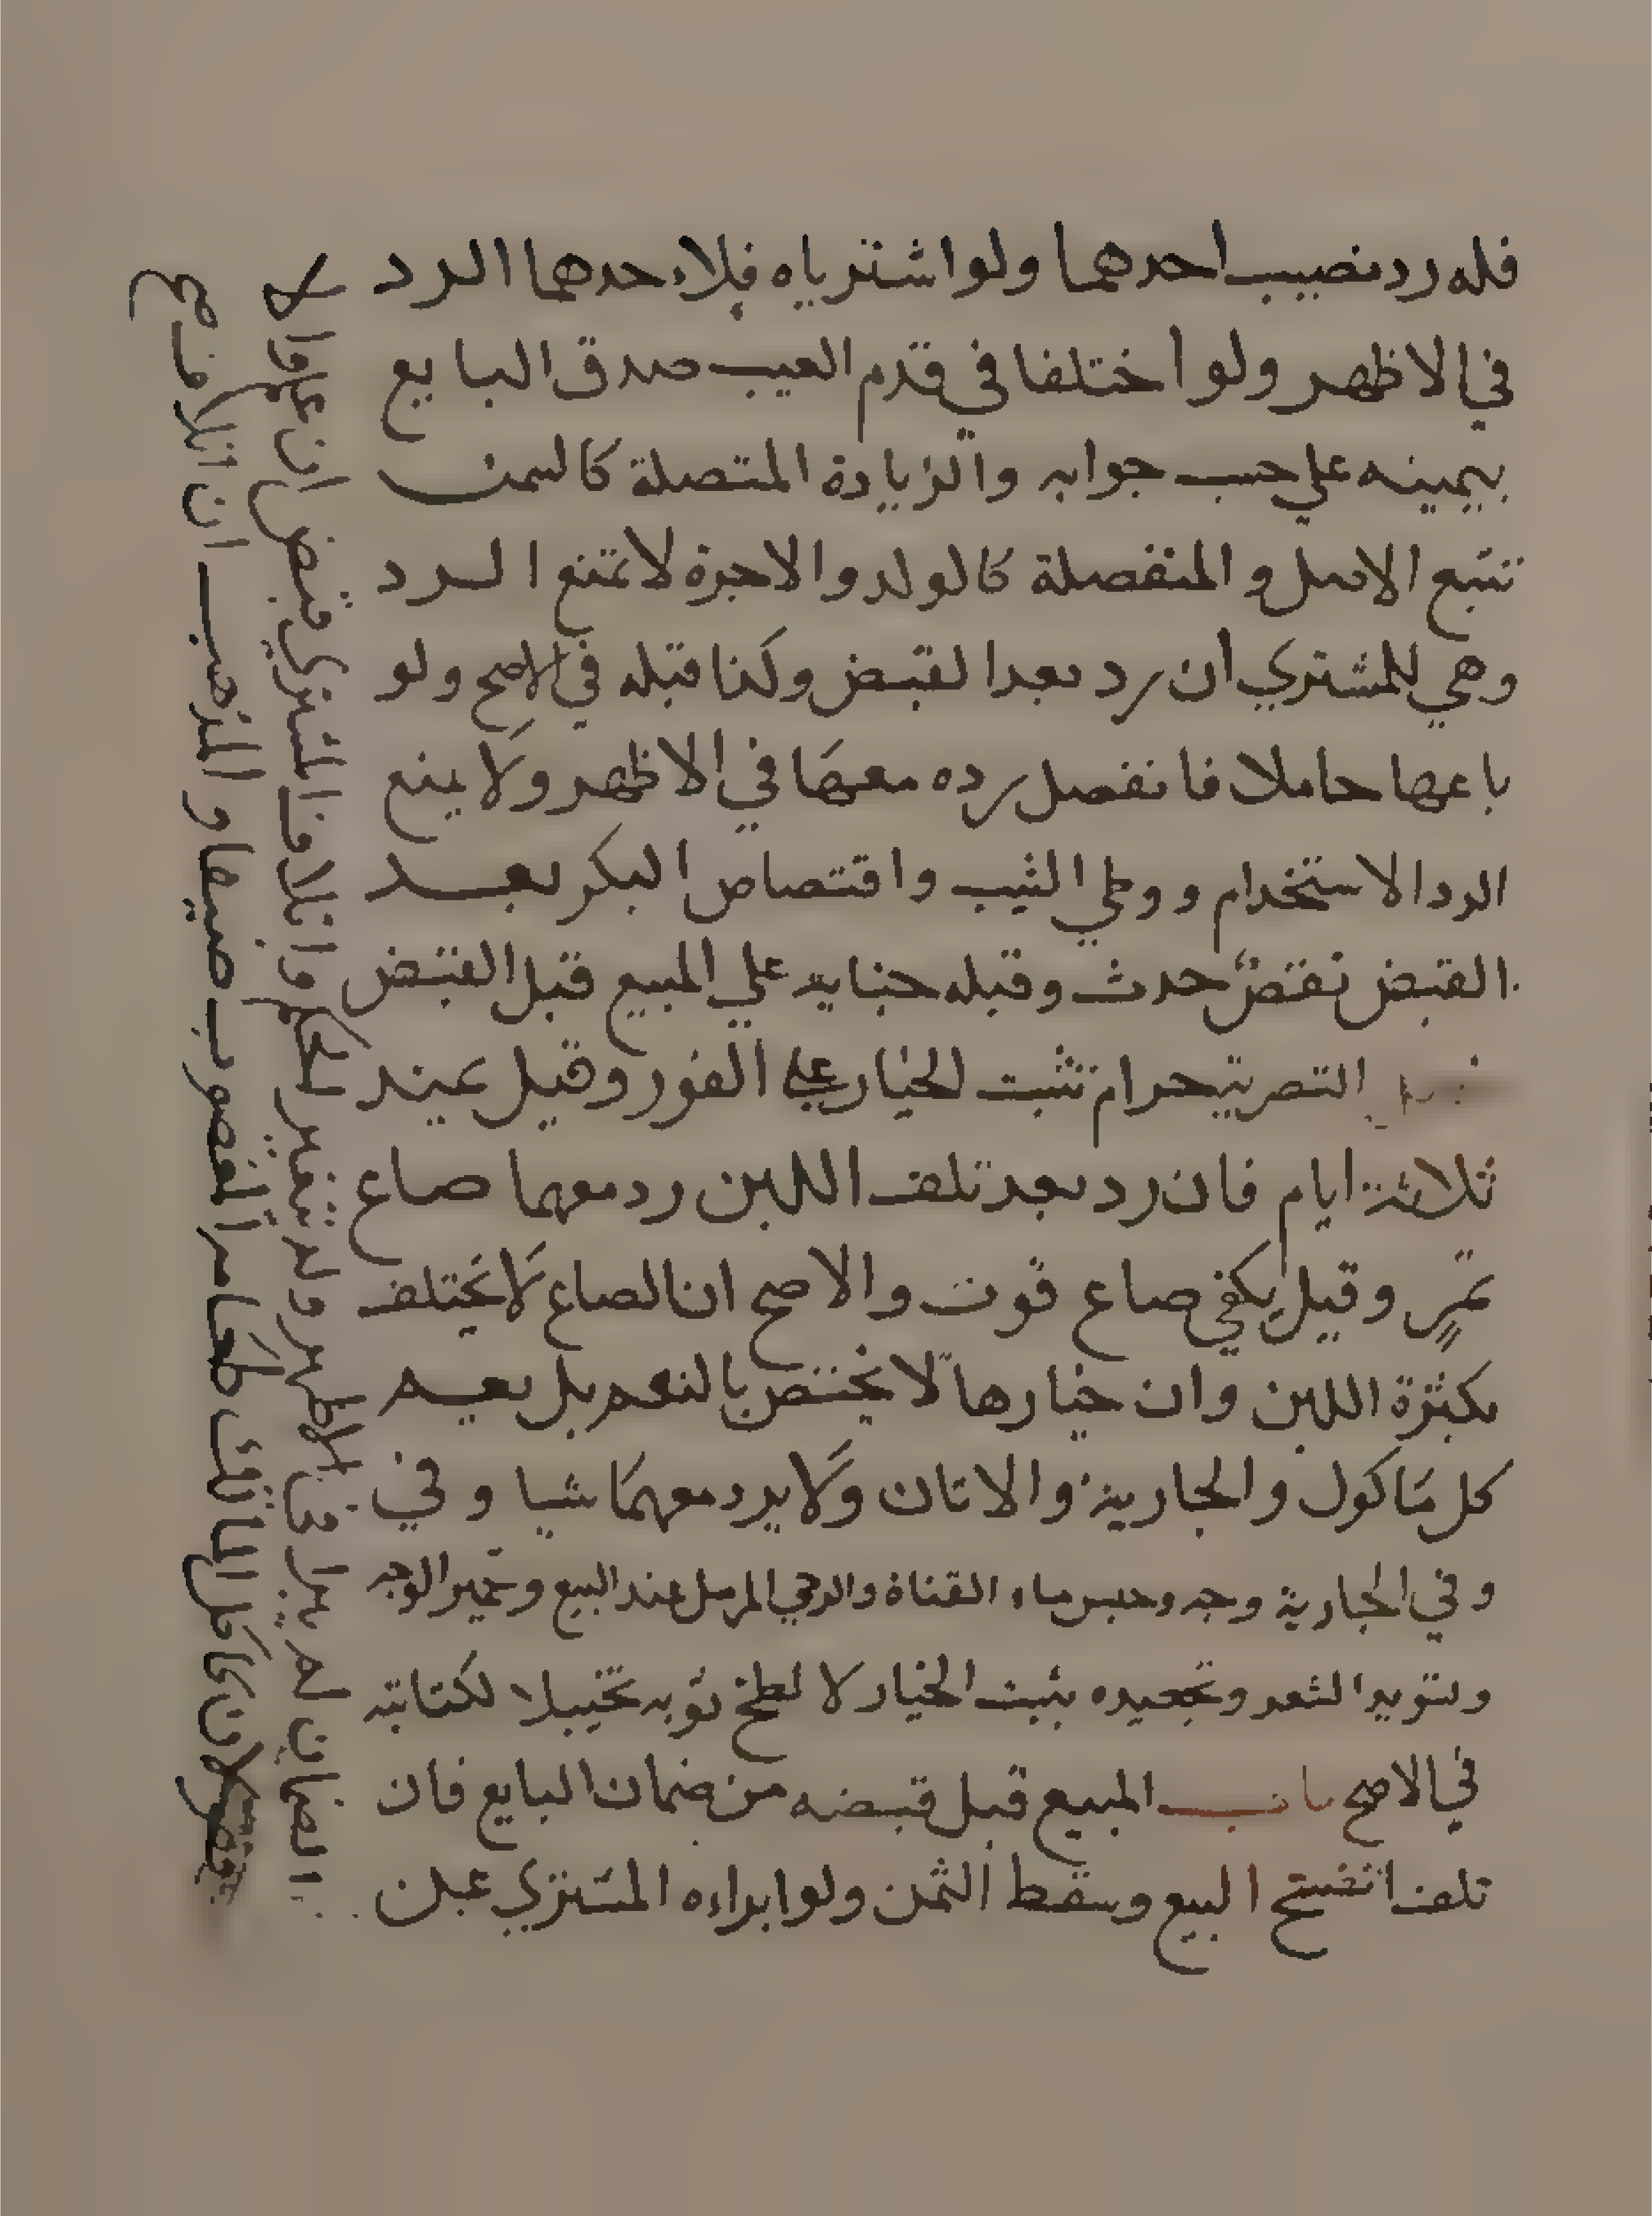 فله رد نصيب احدهما ولو اشترياه فلاءحدهما الرد
في الاظهر ولو اختلفا في قدم العيب صدق البايع
بيمينه علي حسب جوابه والزيادة المتصلة كالسمن
تتبع الاصل والمنفصلة كالولد والاجرة لا تمنع الرد
وهي للمشتري ان رد بعد القبض وكذا قبله في الاصح ولو
باعها حاملا فانفصل رده معها في الاظهر ولا يمنع
الرد الاستخدام ووطي الثيب واقتصاص البكر بعد
القبض نقص حدث وقبله جناية علي المبيع قبل القبض
التصرية حرام تثبت الخيار علي الفور وقيل عيند
ثلاثة ايام فان رد بعد تلف اللبن رد معهما صاع
تمر وقيل يكفي صاع قوت والاصح ان الصاع لا يختلف
بكثرة اللبن وان خيارها لا يختص بالنعم بل يعم
كل ماكول والجارية والاتان ولا يرد معهما شيا وفي
وفي الجارية وجه وحبس ماء القناة والرحي المرسل عند البيع وتحمير الوجه
وتسويد الشعر وتجعيده يثبت الخيار لا لطخ ثوبه تخييلا لكتابته
في الاصح باب المبيع قبل قبضه من ضمان البايع فان
تلف انفسخ البيع وسقط الثمن ولو ابراءه المشتري عن
الضمان لم يبرا في الاظهر ولم يتغير الحكم واتلاف المشتري قبض ان علم والا
فقولان كاكل المالك طعامه المغصوب ضيفا والمذهب ان اتلاف